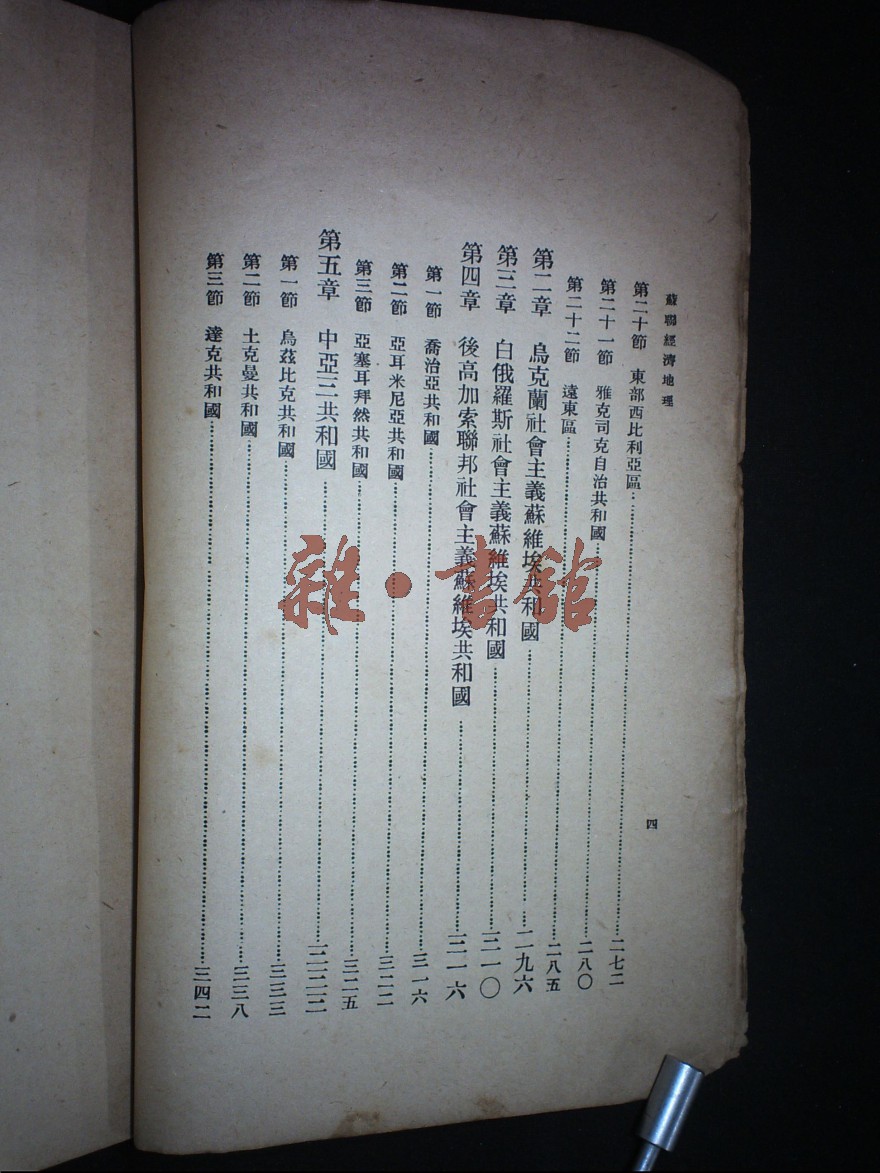 蘇聯經濟地理
四
第二十節 東部西比利亞區……二七二
第二十一節 雅克司克自治共和國……二八〇
第二十二節 遠東區……二八五
第二章 烏克蘭社會主義蘇維埃共和國……二九六
第三章 白俄羅斯社會主義蘇維埃共和國……三一〇
第四章 後高加索聯邦社會主義蘇維埃共和國……三一六
第一節 喬治亞共和國……三一六
第二節 亞耳米尼亞共和國……三二二
第三節 亞塞耳拜然共和國……三二五
第五章 中亞三共和國……三三三
第一節 烏茲比克共和國……三三三
第二節 土克曼共和國……三三八
第三節 達克共和國……三四二
雜·書館